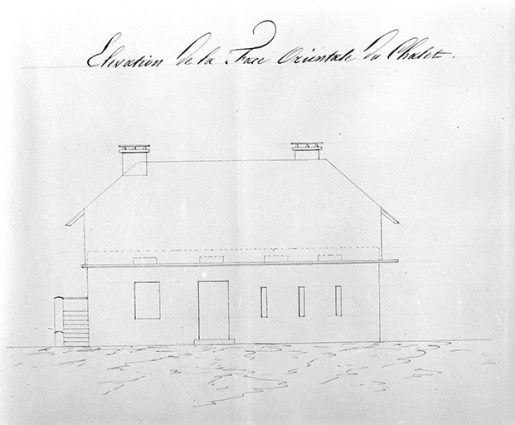 Elévation de la Face Orientale du Chalet.